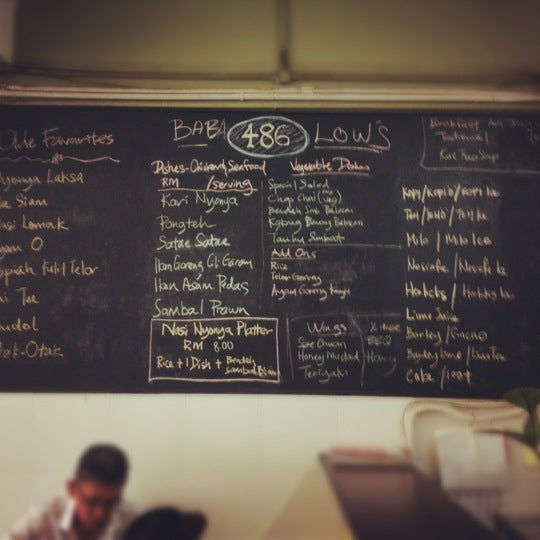 BABA 486 LOW'S
Olde Favourites
Nyonya Laksa
Siam
Nasi Lemak
O
Telor
Tee
-Otak
Dishes-Chicken & Seafood
RM /serving
Kari Nyonya
Pongteh
Satae Satae
Ikan Goreng Cili Garam
Ikan Asam Pedas
Sambal Prawn
Nasi Nyonya Platter
RM 8.00
Rice + 1 Dish + Bendeh
Sambal
Vegetable Dishes
Special Salad
Chap Chai (veg)
Bendeh Sambal Belacan
Kangkong Belacan
Tauhu Sumbat
Add Ons
Rice
Telor Goreng
Ayam Goreng
Wings
Honey Mustard
Teriyaki
BBQ
Honey
Breakfast
Traditional
Kopi/Kopi O/Kopi
Teh/Teh O/Teh
Milo/Milo Ice
Nescafe/Nescafe
Horlicks/Horlicks
Lime Juice
Barley/
Barley Lime/
Coke/100+